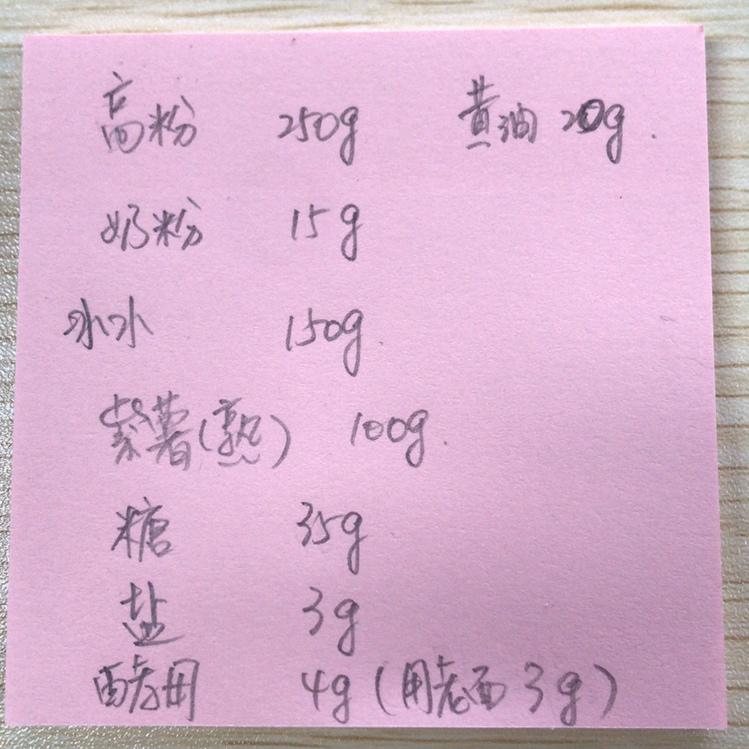 高粉 250g 黄油 20g.
奶粉 15g
冰水 150g.
紫薯(熟) 100g.
糖 35g
盐 3g
酵母 4g (用老面 3g)